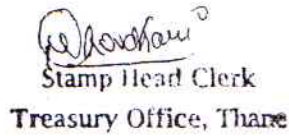 Stamp Head Clerk
Treasury Office, Thane